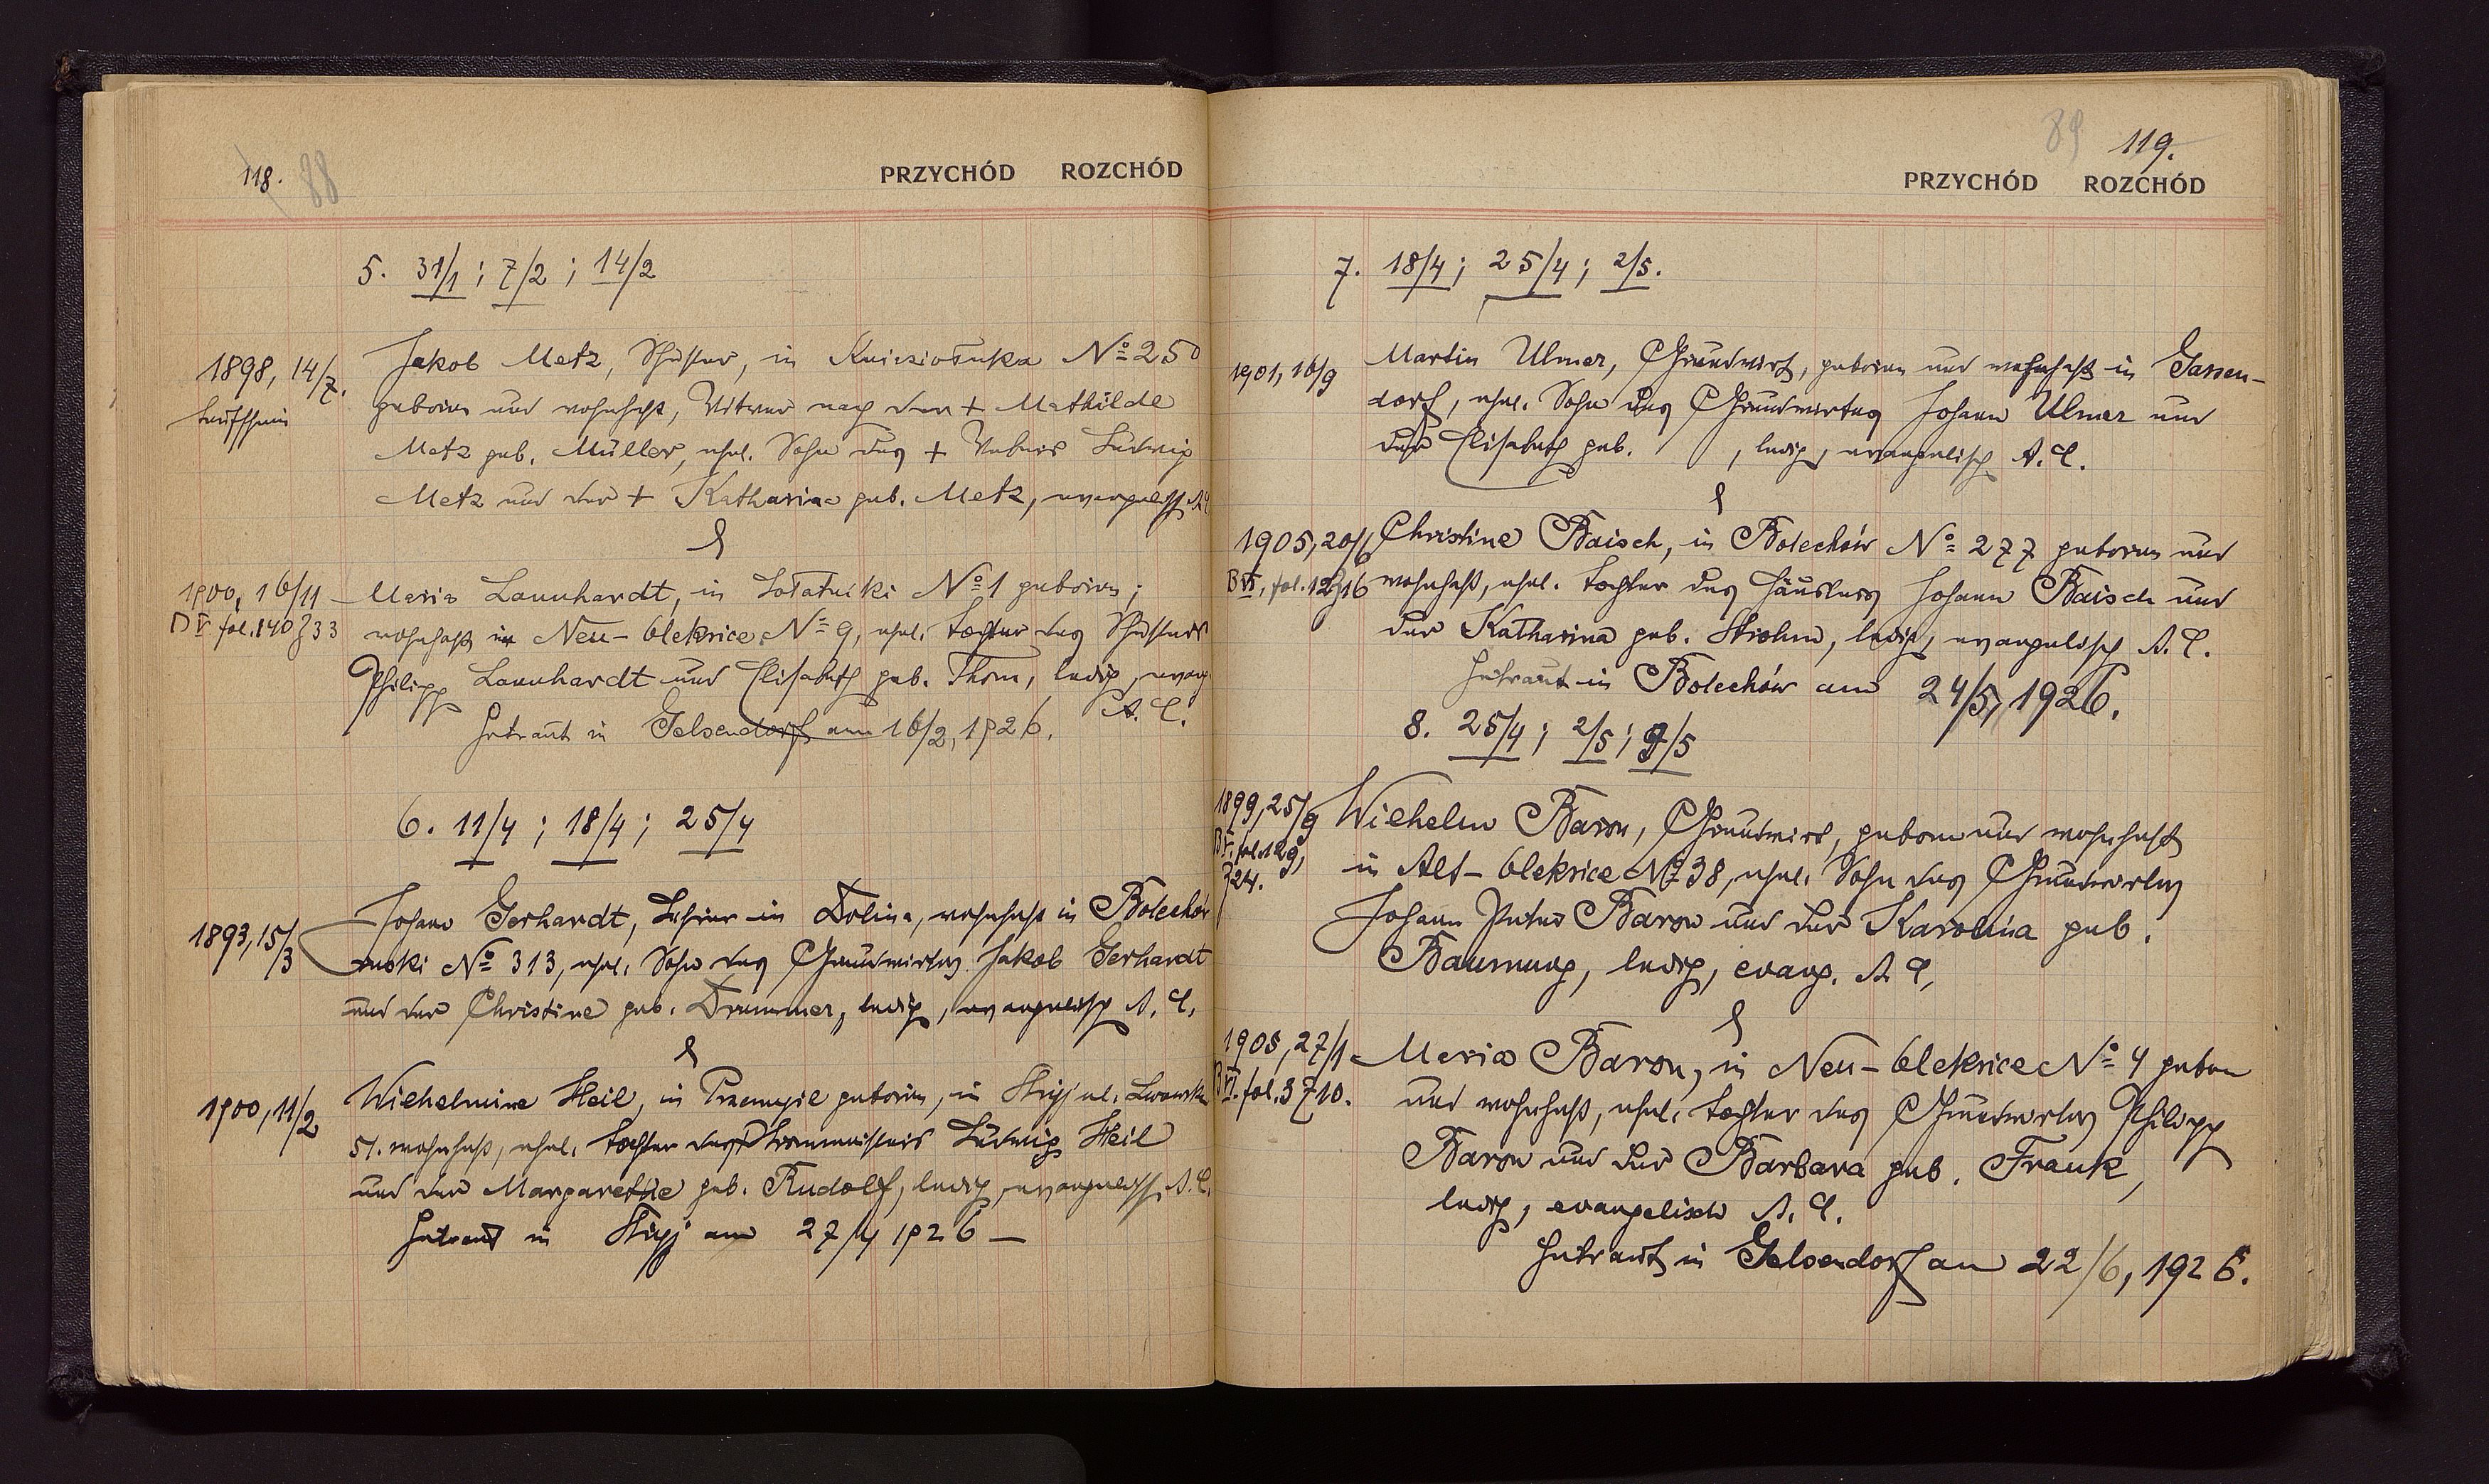 118. 88
PRZYCHÓD ROZCHÓD
5. 31/1 ; 7/2 ; 14/2
1898, 14/7.
Taufschein
Jakob Metz, Schuster, in Kniaziołuka No 250
geboren und wohnhaft, Witwer nach der + Mathilde
Metz geb. Müller, ehel. Sohn des + Webers Ludwig
Metz und der + Katharina geb. Metz, evangelisch A.C.
&
1900, 16/11
B V fol. 140 Z 33
Maria Lannhardt, in Łotatniki No 1 geboren;
wohnhaft in Neu-Oleksice No 9, ehel. Tochter des Schusters
Philipp Lannhardt und Elisabeth geb. Thom, ledig, evang.
A. C.
Getraut in Gelsendorf am 16/2, 1926.
6. 11/4 ; 18/4 ; 25/4
1893, 15/3
Johann Gerhardt, Lehrer in Dolina, wohnhaft in Bolechów
ruski No 313, ehel. Sohn des Grundwirtes Jakob Gerhardt
und der Christine geb. Drummer, ledig, evangelisch A. C.
&
1900, 11/2
Wilhelmine Heil, in Przemyśl geboren, in Stryj ul. Lwowska
51. wohnhaft, ehel. Tochter des Ludwig Heil
und der Margarethe geb. Rudolf, ledig, evangelisch A. C.
Getraut in Stryj am 27/4 1926 —
89 119.
PRZYCHÓD ROZCHÓD
7. 18/4 ; 25/4 ; 2/5.
1901, 16/9
Martin Ulmer, Grundwirt, geboren und wohnhaft in Gassen-
dorf, ehel. Sohn des Grundwirtes Johann Ulmer und
der Elisabeth geb. , ledig, evangelisch A. C.
&
1905, 20/6
B VI, fol. 12 Z 16
Christine Baisch, in Bolechów No 277 geboren und
wohnhaft, ehel. Tochter des Häuslers Johann Baisch und
der Katharina geb. Strohm, ledig, evangelisch A. C.
Getraut in Bolechów am 24/5, 1926.
8. 25/4 ; 2/5 ; 9/5
1899, 25/9
B V. fol. 129,
Z 24.
Wilhelm Baron, Grundwirt, geboren und wohnhaft
in Alt-Oleksice No 38, ehel. Sohn des Grundwirtes
Johann Peter Baron und der Karolina geb.
Baumung, ledig, evang. A. C,
&
1905, 27/1
B VI. fol. 3 Z 10.
Maria Baron, in Neu-Oleksice No 4 geboren
und wohnhaft, ehel. Tochter des Grundwirtes Philipp
Baron und der Barbara geb. Frank,
ledig, evangelisch A. C.
Getraut in Gelsendorf am 22/6, 1926.